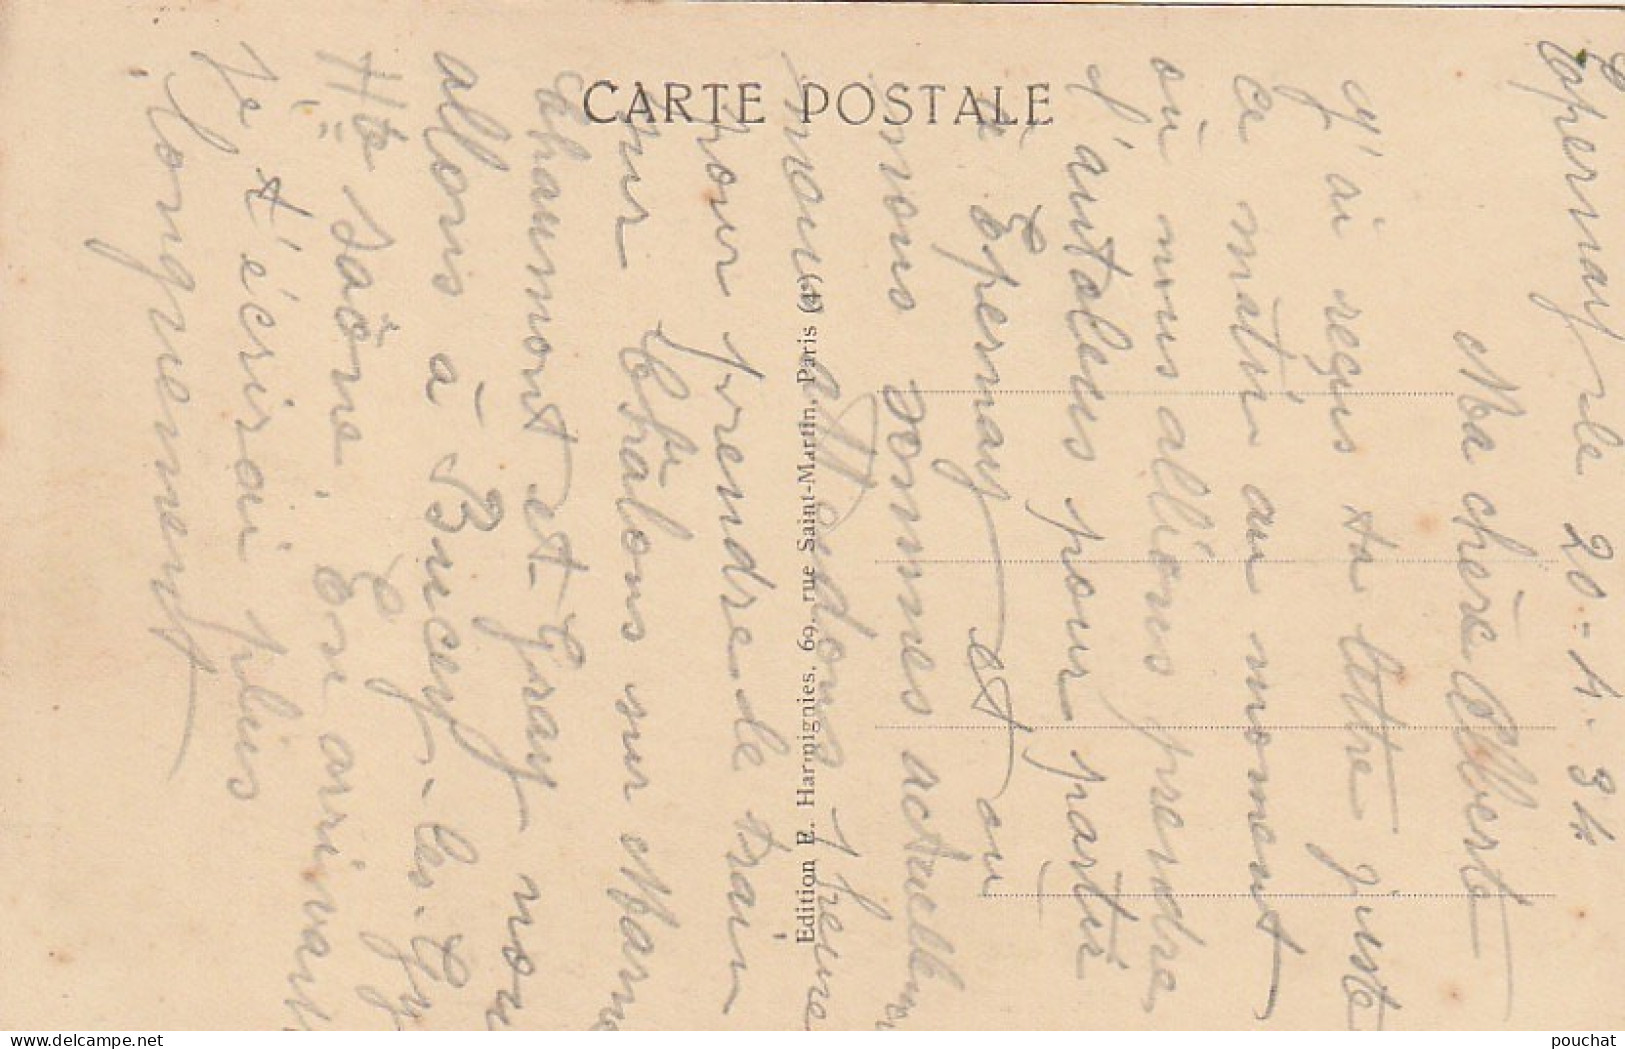 CARTE POSTALE
Edition E. Harmignies, 69, rue Saint-Martin, Paris (4e)
Epernay le 20-4-34
Ma chère Alberte
J'ai reçus ta lettre juste
ce matin au moment
où nous allions prendre
l'autobus pour partir
à Epernay et où
nous sommes actuellem
nous attendons 1 heure
pour prendre le train
sur Châlons sur Marne
Chaumont et Gray nous
allons à Bucey-les-Gy
Hte Saône. En arrivant
je t'écrirai plus
longuement
pouchat